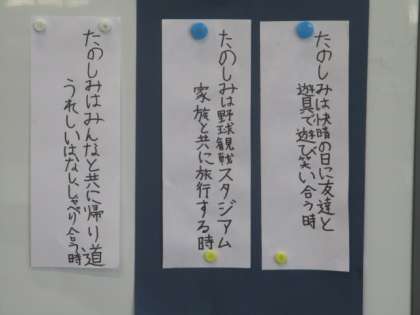 たのしみは快晴の日に友達と
遊具で遊び笑い合う時
たのしみは野球観戦スタジアム
家族と共に旅行する時
たのしみはみんなと共に帰り道
うれしいはなししゃべり合う時